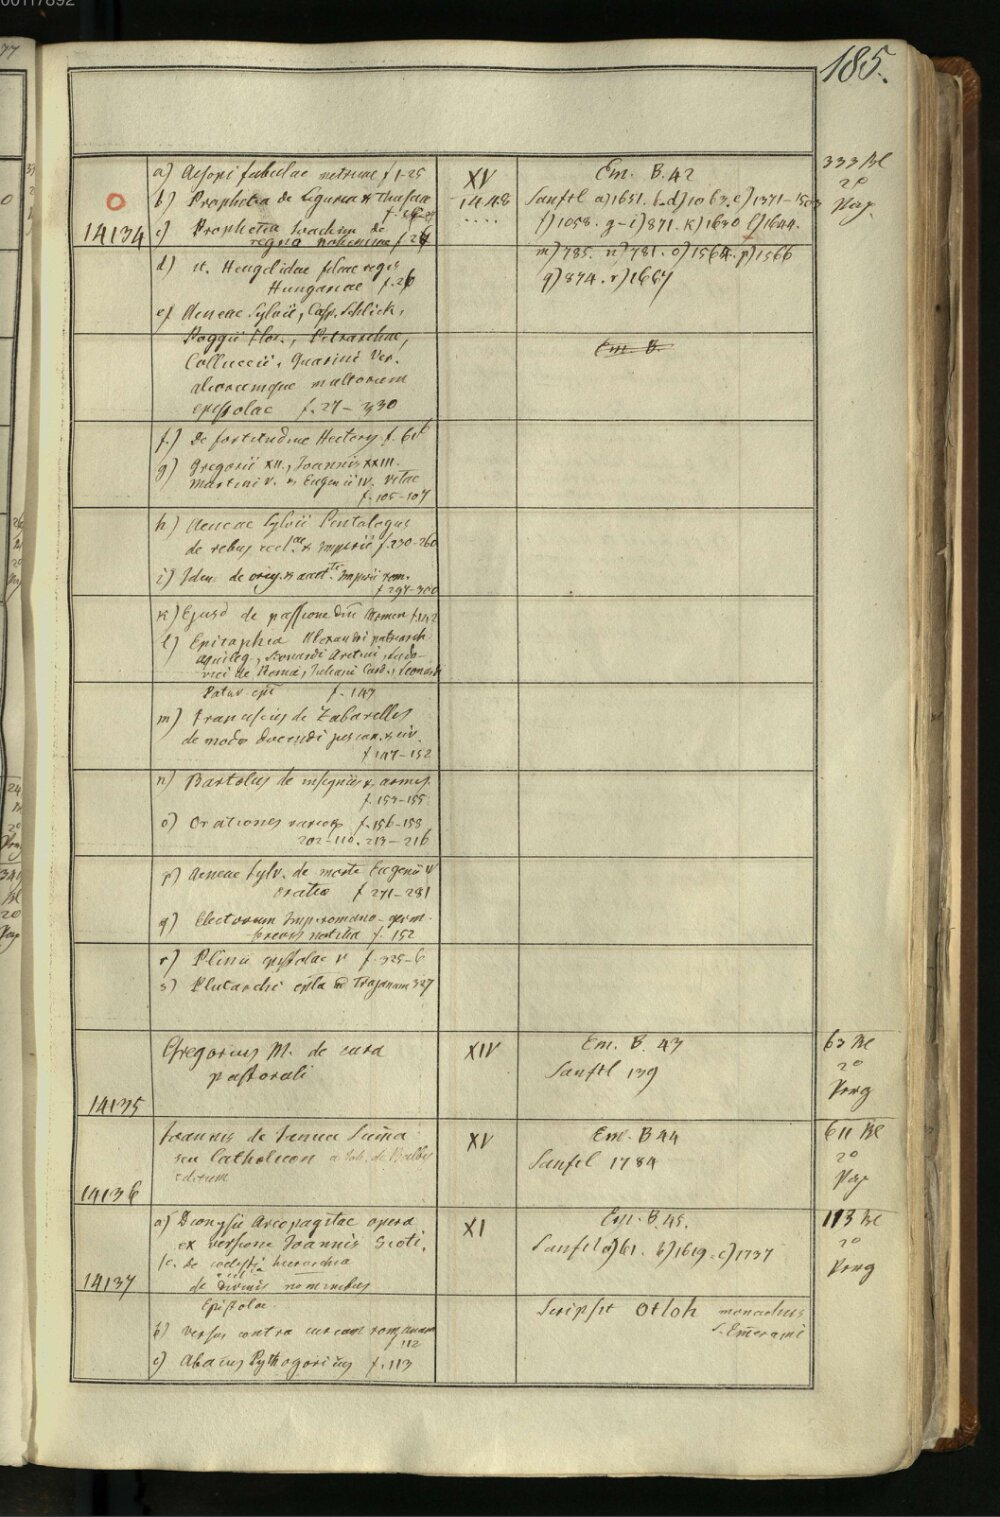 185.
14134
a) Aesopi fabulae metricae f 1-25
b) Prophetia de Liguria & Thuscia
c) Prophetia Joachim de
regno f. 26
d) st. Hengelidae filiae regis
Hungariae f. 26
e) Aeneae Sylvii, Casp. Schlick,
Poggii Flor., Petrarchae,
Colluccii, Guarini Ver.
aliorumque multorum
epistolae f. 27 – 330
f.) De fortitudine Hectoris f. 61
g) Gregorii XII., Joannis XXIII.
Martini V. & Eugenii IV. Vitae
f. 105-107
h) Aeneae Sylvii Pentalogus
de rebus eccl. & Imperii f. 230-260
i) Idem de orig. & auct. Imperii rom.
f 294-300
k) Ejusd de passione Dni f. 142
l) Epitaphia Alexandri patriarch
aquileg., Leonardi Aretini, Ludo-
vici de Roma, Juliani Card., Leonardi
Patav. epi f. 147
m) Franciscus de Zabarellis
de modo docendi jus can. & civ.
f 147-152
n) Bartolus de insigniis & armis
f. 153-155
o) Orationes variae f. 156-158
202-110. 213-216
p) Aeneae Sylv. de morte Eugenii IV
oratio f 271-281
q) Electorum Imp. romano-germ.
brevis notitia f. 152
r) Plinii epistolae V f. 325-6
s) Plutarchi epla ad Trajanum 327
XV
1448
Em. B. 42
Sanftl a) 1651. b-d) 1063. e) 1371-1503
f) 1058. g-i) 871. k) 1630 l) 1644.
m) 785. n) 781. o) 1564. p) 1566
q) 874. r) 1667
Em. B.
333 Bl
2°
Pap.
14135
Gregorius M. de cura
pastorali
XIV
Em. B. 43
Sanftl 139
63 Bl
2°
Perg
14136
Joannis de Janua Suma
seu Catholicon a Joh. de Balbis
editum
XV
Em. B 44
Sanftl 1784
611 Bl
2°
Pap
14137
a) Dionysii Areopagitae opera
ex versione Joannis Scoti.
sc. de coelesti hierarchia
de divinis nominibus
Epistolae
b) Versus contra curiam romanam
f 112
c) Abacus Pythagoricus f. 113
XI
Em. B. 45.
Sanftl a) 61. b) 1619. c) 1737
Scripsit Otloh monachus
S. Emerami
113 Bl
2°
Perg